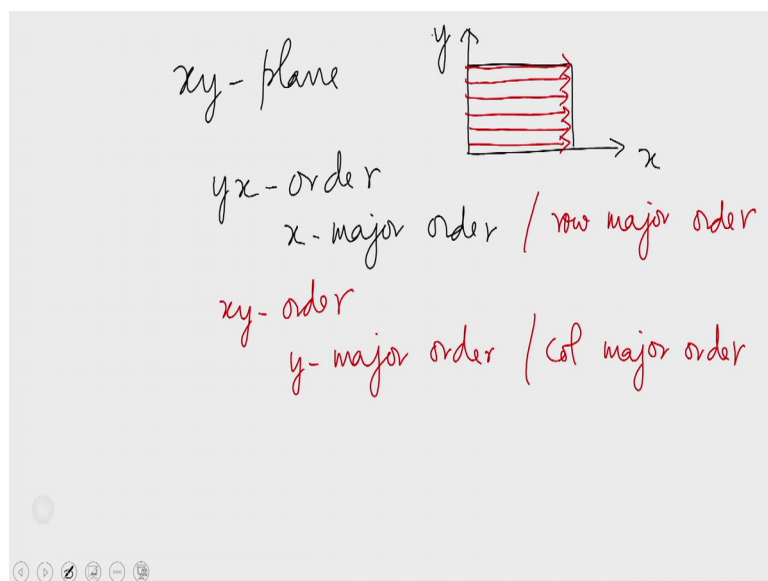 xy - plane
y
x
yx - order
x - major order / row major order
xy - order
y - major order / col major order